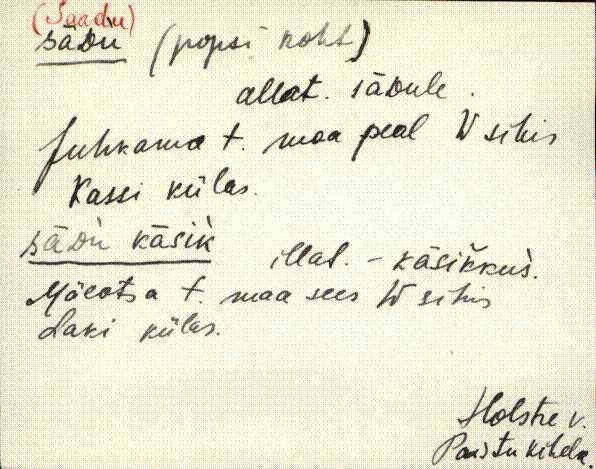 (Saadu)
sädu (popsi koht)
allat. sädule.
Juhkama t. maa peal W sihis
Kassi külas.
sädu käsik illat. - käsikkus.
Mäeotsa t. maa sees W sihis
Laki külas.
Holstre v.
Paistu kihelk.